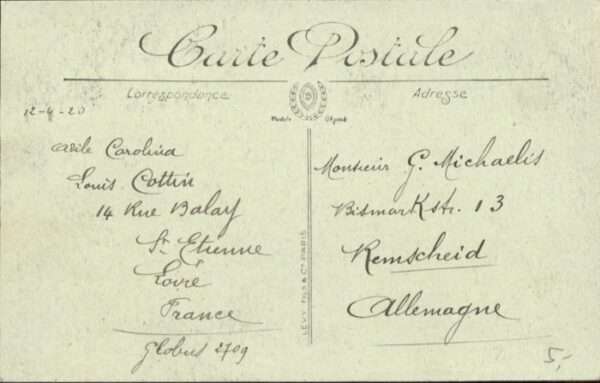 Carte Postale
Correspondance
Adresse
12-4-20
Carolina
Louis Cottin
14 Rue Balay
St. Etienne
Loire
France
Globus 2709
Monsieur G. Michaelis
Bismarkstr. 13
Remscheid
Allemagne
LEVY FILS & Cie PARIS
5,-